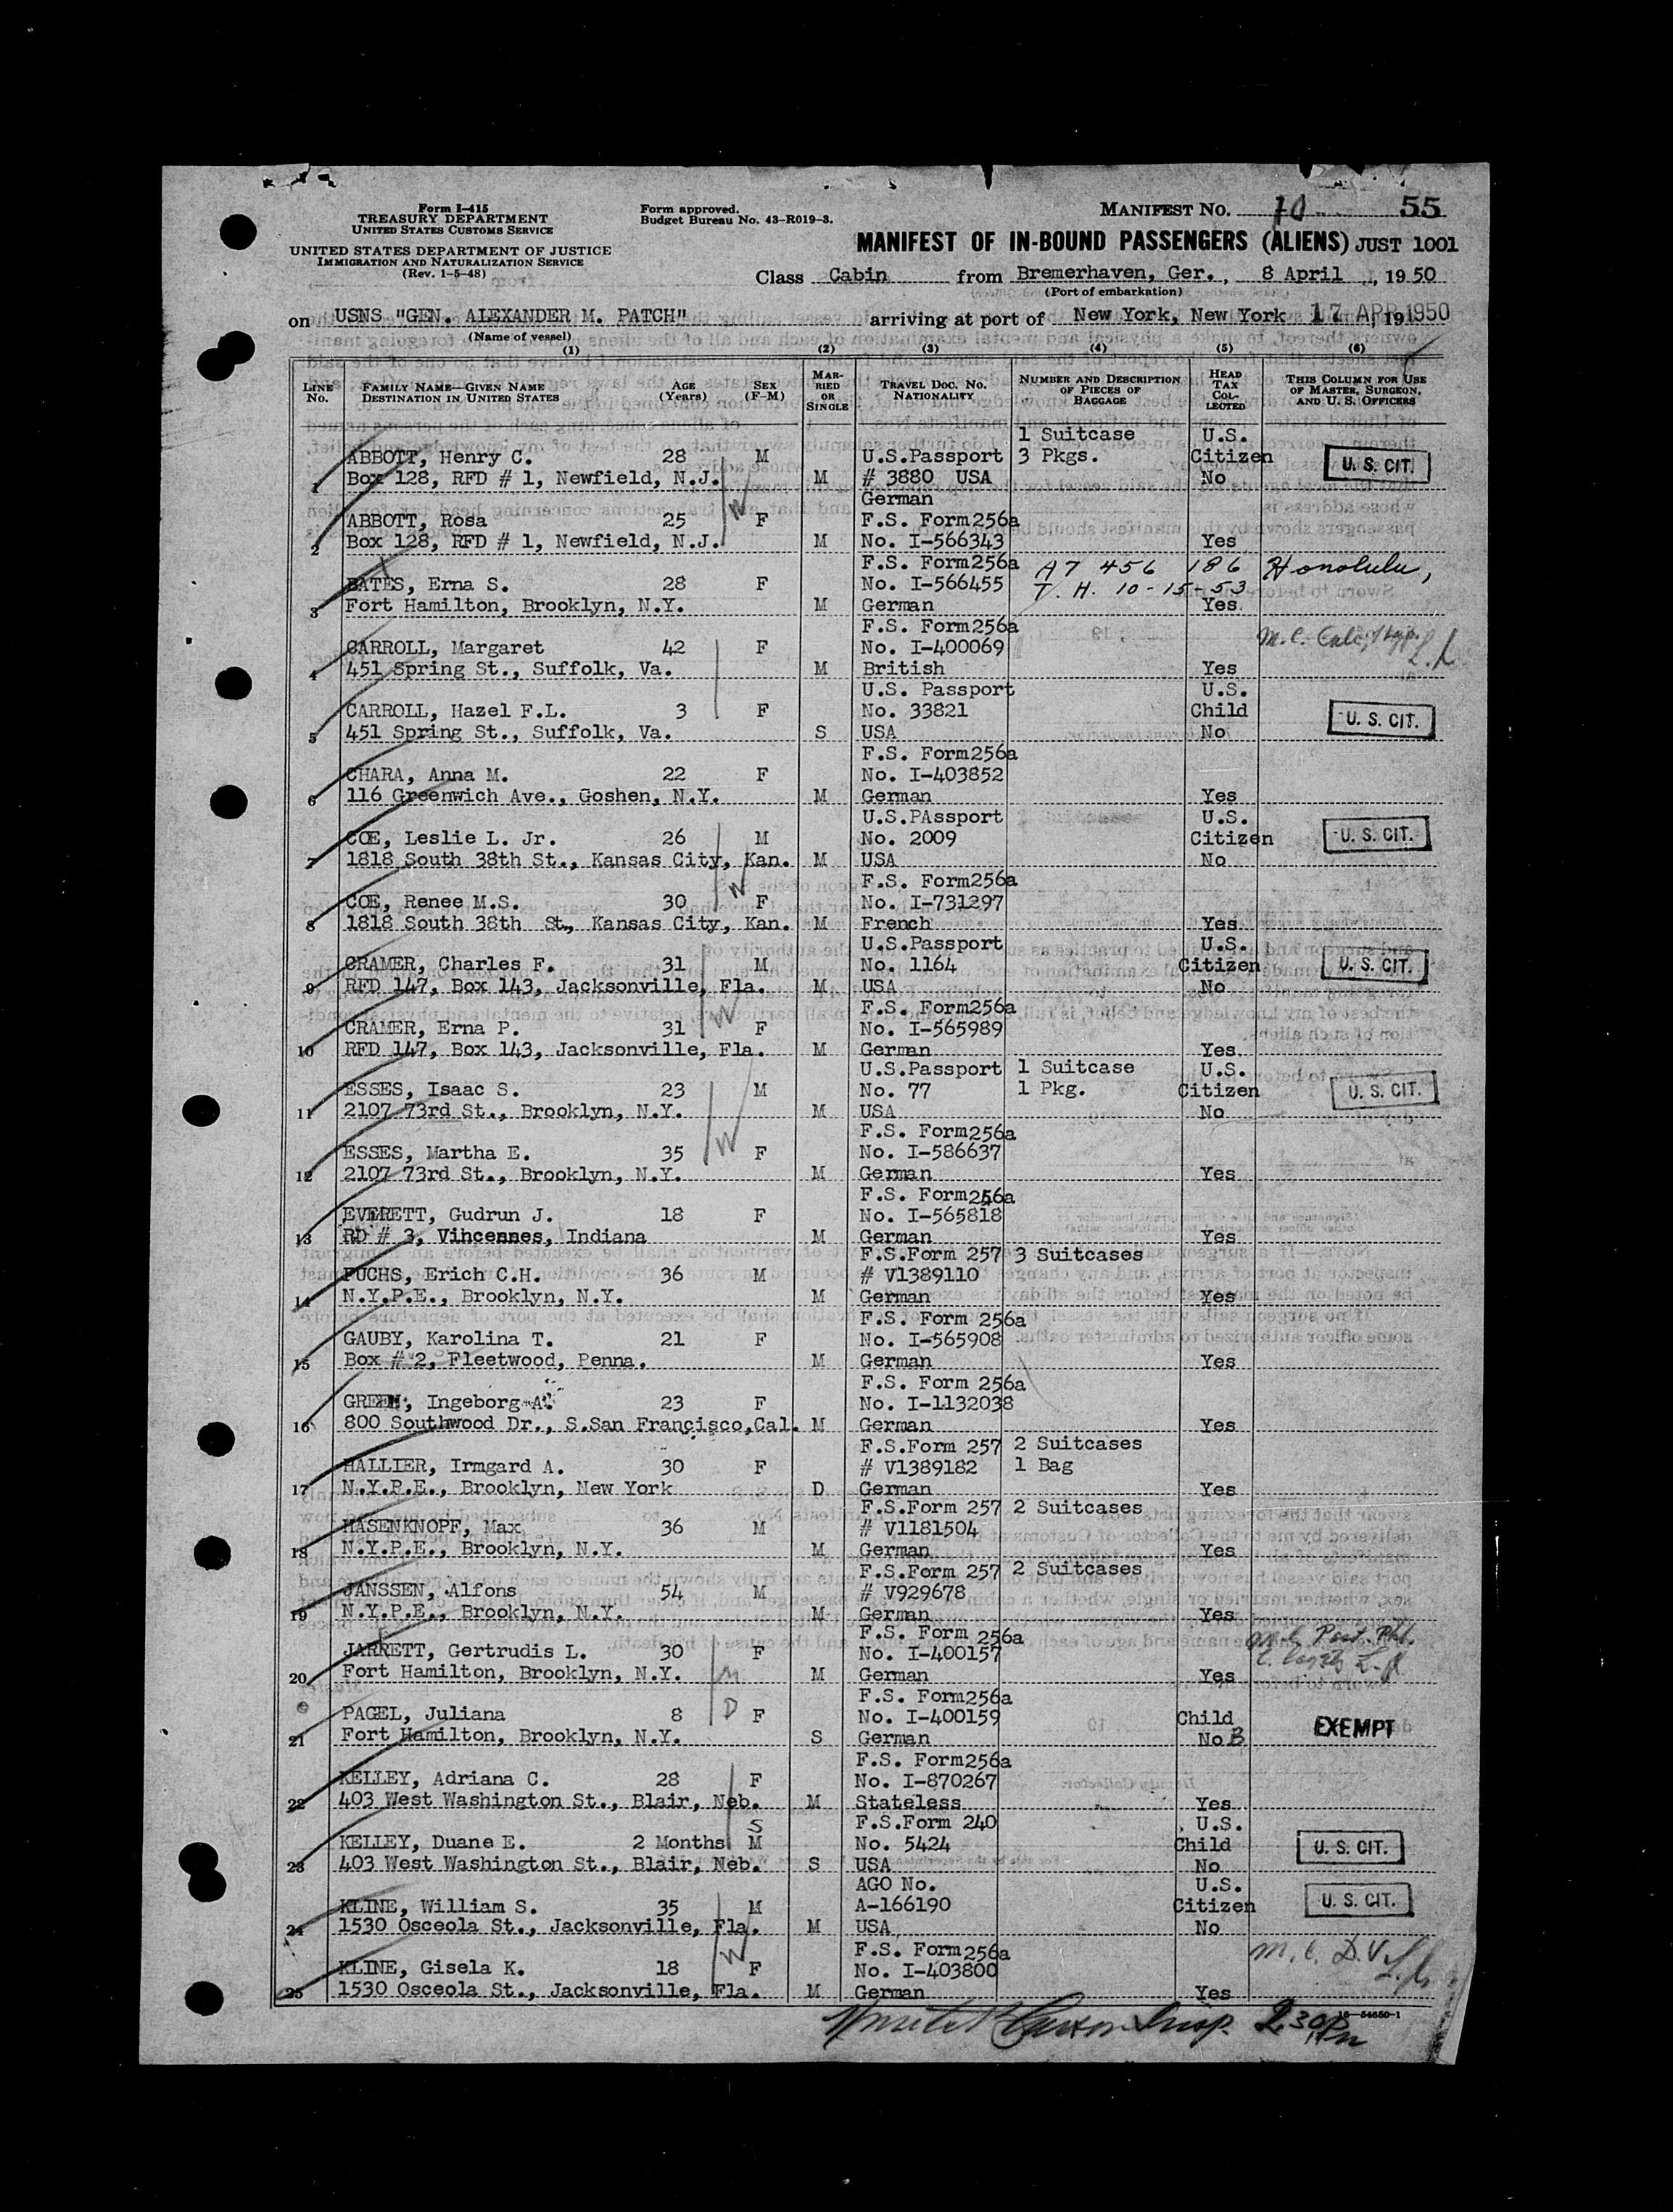 Form I-415
TREASURY DEPARTMENT
UNITED STATES CUSTOMS SERVICE
UNITED STATES DEPARTMENT OF JUSTICE
IMMIGRATION AND NATURALIZATION SERVICE
(Rev. 1-5-48)
Form approved.
Budget Bureau No. 43-R019-3.
MANIFEST NO. 10 55
MANIFEST OF IN-BOUND PASSENGERS (ALIENS) JUST 1001
Class Cabin from Bremerhaven, Ger., 8 April, 1950
(Port of embarkation)
on USNS "GEN. ALEXANDER M. PATCH" arriving at port of New York, New York 17 APR 1950
(Name of vessel)
(1) (2) (3) (4) (5) (6)
LINE NO. FAMILY NAME—GIVEN NAME DESTINATION IN UNITED STATES AGE (Years) SEX (F-M) MARRIED OR SINGLE TRAVEL DOC. NO. NATIONALITY NUMBER AND DESCRIPTION OF PIECES OF BAGGAGE HEAD TAX COLLECTED THIS COLUMN FOR USE OF MASTER, SURGEON, AND U. S. OFFICERS
1 Suitcase U.S.
ABBOTT, Henry C. 28 M U.S.Passport 3 Pkgs. Citizen U. S. CIT.
1 Box 128, RFD # 1, Newfield, N.J. M # 3880 USA No
W German
ABBOTT, Rosa 25 F F.S. Form256a
2 Box 128, RFD # 1, Newfield, N.J. M No. I-566343 Yes
F.S. Form256a A7 456 186 Honolulu,
BATES, Erna S. 28 F No. I-566455 T. H. 10-15-53
3 Fort Hamilton, Brooklyn, N.Y. M German Yes
F.S. Form256a
CARROLL, Margaret 42 F No. I-400069 M.C.
4 451 Spring St., Suffolk, Va. M British Yes
U.S. Passport U.S.
CARROLL, Hazel F.L. 3 F No. 33821 Child U. S. CIT.
5 451 Spring St., Suffolk, Va. S USA No
F.S. Form256a
CHARA, Anna M. 22 F No. I-403852
6 116 Greenwich Ave., Goshen, N.Y. M German Yes
U.S.PAssport U.S.
COE, Leslie L. Jr. 26 M No. 2009 Citizen U. S. CIT.
7 1818 South 38th St., Kansas City, Kan. M USA No
W F.S. Form256a
COE, Renee M.S. 30 F No. I-731297
8 1818 South 38th St., Kansas City, Kan. M French Yes
U.S.Passport U.S.
CRAMER, Charles F. 31 M No. 1164 Citizen U. S. CIT.
9 RFD 147, Box 143, Jacksonville, Fla. M USA No
W F.S. Form256a
CRAMER, Erna P. 31 F No. I-565989
10 RFD 147, Box 143, Jacksonville, Fla. M German Yes
U.S.Passport 1 Suitcase U.S.
ESSES, Isaac S. 23 M No. 77 1 Pkg. Citizen U. S. CIT.
11 2107 73rd St., Brooklyn, N.Y. M USA No
W F.S. Form256a
ESSES, Martha E. 35 F No. I-586637
12 2107 73rd St., Brooklyn, N.Y. M German Yes
F.S. Form256a
EVERETT, Gudrun J. 18 F No. I-565818
13 RD # 3, Vincennes, Indiana M German Yes
F.S.Form 257 3 Suitcases
FUCHS, Erich C.H. 36 M # V1389110
14 N.Y.P.E., Brooklyn, N.Y. M German Yes
F.S. Form 256a
GAUBY, Karolina T. 21 F No. I-565908
15 Box # 2, Fleetwood, Penna. M German Yes
F.S. Form 256a
GREEN, Ingeborg A. 23 F No. I-1132038
16 800 Southwood Dr., S.San Francisco,Cal. M German Yes
F.S.Form 257 2 Suitcases
HALLIER, Irmgard A. 30 F # V1389182 1 Bag
17 N.Y.P.E., Brooklyn, New York D German Yes
F.S.Form 257 2 Suitcases
HASENKNOPF, Max 36 M # V1181504
18 N.Y.P.E., Brooklyn, N.Y. M German Yes
F.S.Form 257 2 Suitcases
JANSSEN, Alfons 54 M # V929678
19 N.Y.P.E., Brooklyn, N.Y. M German Yes
F.S. Form 256a
JARRETT, Gertrudis L. 30 F No. I-400157
20 Fort Hamilton, Brooklyn, N.Y. M M German Yes
F.S. Form256a
PAGEL, Juliana 8 D F No. I-400159 Child EXEMPT
21 Fort Hamilton, Brooklyn, N.Y. S German No B
F.S. Form256a
KELLEY, Adriana C. 28 F No. I-870267
22 403 West Washington St., Blair, Neb. M Stateless Yes
S F.S.Form 240 U.S.
KELLEY, Duane E. 2 Months M No. 5424 Child U. S. CIT.
23 403 West Washington St., Blair, Neb. S USA No
AGO No. U.S.
KLINE, William S. 35 M A-166190 Citizen U. S. CIT.
24 1530 Osceola St., Jacksonville, Fla. M USA No
W F.S. Form256a M.C. D.V.
KLINE, Gisela K. 18 F No. I-403800
25 1530 Osceola St., Jacksonville, Fla. M German Yes
16—54650-1
Insp. 2:30 Pm